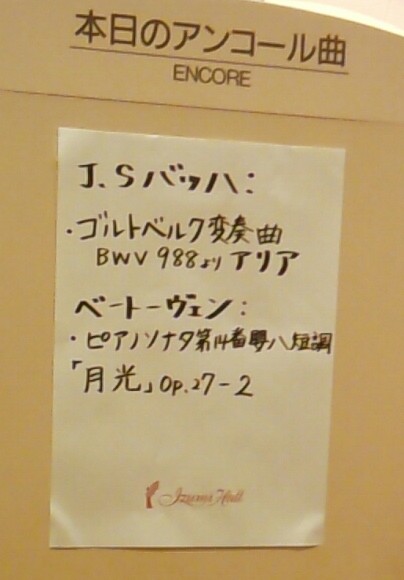 本日のアンコール曲
ENCORE
J.Sバッハ:
・ゴルトベルク変奏曲
BWV 988より アリア
ベートーヴェン:
・ピアノソナタ第14番嬰ハ短調
「月光」Op.27-2
Izumi Hall